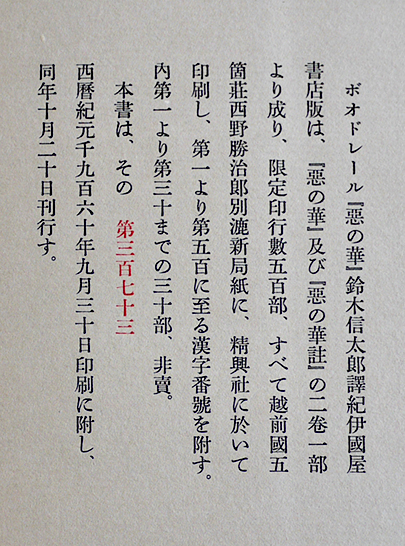 ボオドレール『惡の華』鈴木信太郎譯紀伊國屋
書店版は、『惡の華』及び『惡の華註』の二卷一部
より成り、限定印行數五百部、すべて越前國五
箇莊西野勝治郎別漉新局紙に、精興社に於いて
印刷し、第一より第五百に至る漢字番號を附す。
內第一より第三十までの三十部、非賣。
本書は、その　第三百七十三
西曆紀元千九百六十年九月三十日印刷に附し、
同年十月二十日刊行す。